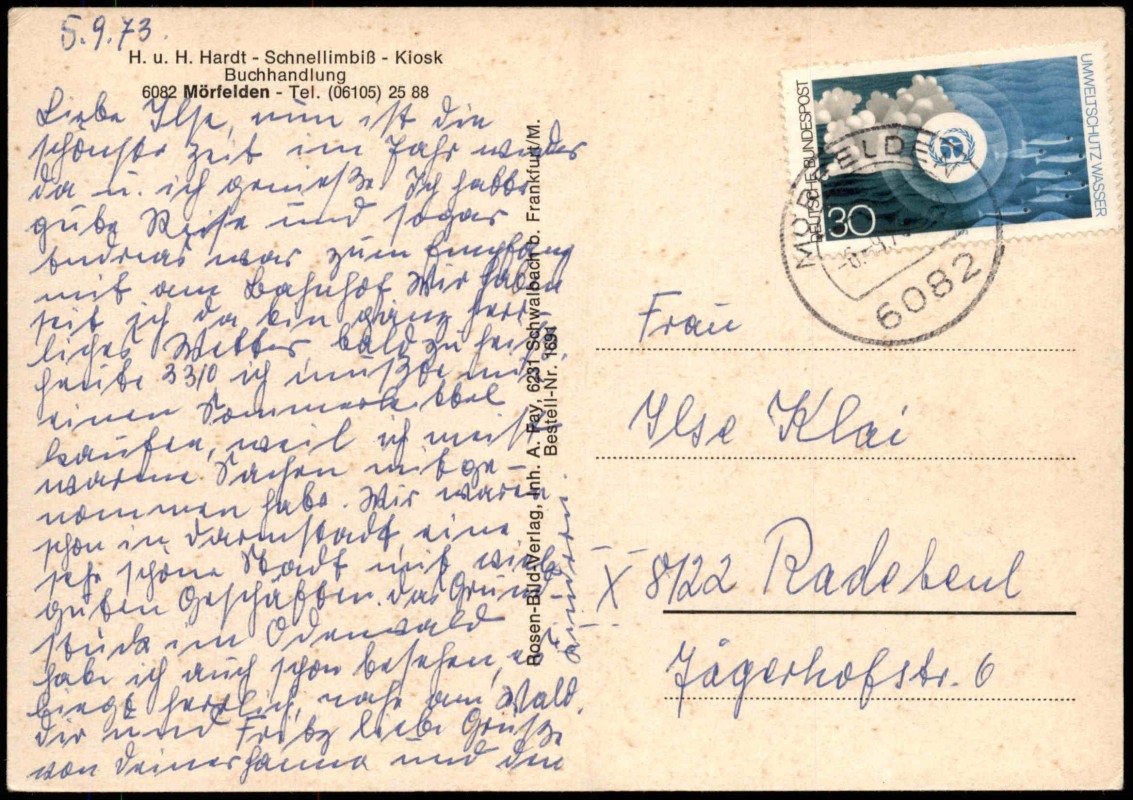 5.9.73.
H. u. H. Hardt - Schnellimbiß - Kiosk
Buchhandlung
6082 Mörfelden - Tel. (06105) 25 88
Liebe Ilse, nun ist die
schönste Zeit im Jahr wieder
da u. ich genieße. Ich hatte
gute Reise und sogar
Andreas war zum Empfang
mit am Bahnhof. Wir haben
seit ich da bin ganz herr-
liches Wetter, bald zu heiß,
heute 33/0 ich mußte mir
einen Sommerkittel
kaufen, weil ich meist
warme Sachen mitge-
nommen habe. Wir waren
schon in Darmstadt, eine
sehr schöne Stadt mit viel
guten Geschäften. Das Grund-
stück im Odenwald
habe ich auch schon besehen, es
liegt herrlich, nahe am Wald.
Dir und Fritz liebe Grüße
von Deiner Hanna und den
Kindern.
Rosen-Bild-Verlag, Inh. A. Fay, 6231 Schwalbach b. Frankfurt/M.
Bestell-Nr. 1691
DEUTSCHE BUNDESPOST
30
UMWELTSCHUTZ WASSER
MÖRFELDEN
6082
Frau
Ilse Klai
X 8122 Radebeul
Jägerhofstr. 6